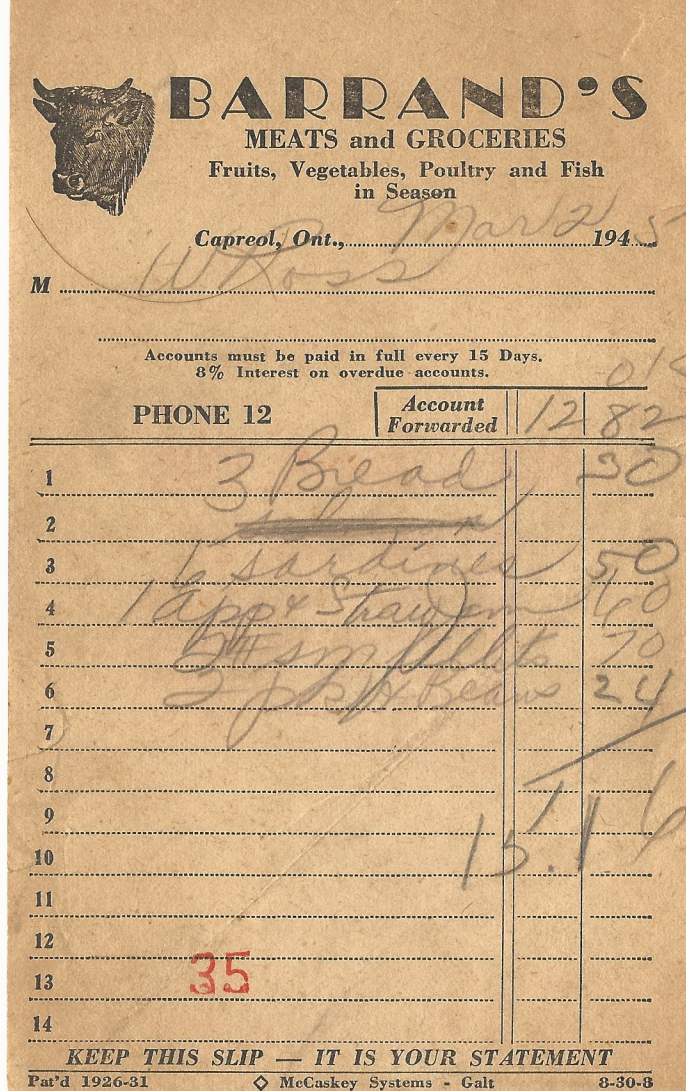 BARRAND'S
MEATS and GROCERIES
Fruits, Vegetables, Poultry and Fish
in Season
Capreol, Ont., Mar 2 1945
M W Ross
Accounts must be paid in full every 15 Days.
8% Interest on overdue accounts.
PHONE 12 Account Forwarded 12 82
1 3 Bread 30
2
3 6 sardines 50
4 1 app & Straw 60
5 2# sm fillits 70
6 2 Beans 24
7
8
9 15.16
10
11
12
13 35
14
KEEP THIS SLIP — IT IS YOUR STATEMENT
Pat'd 1926-31 McCaskey Systems - Galt 8-30-3